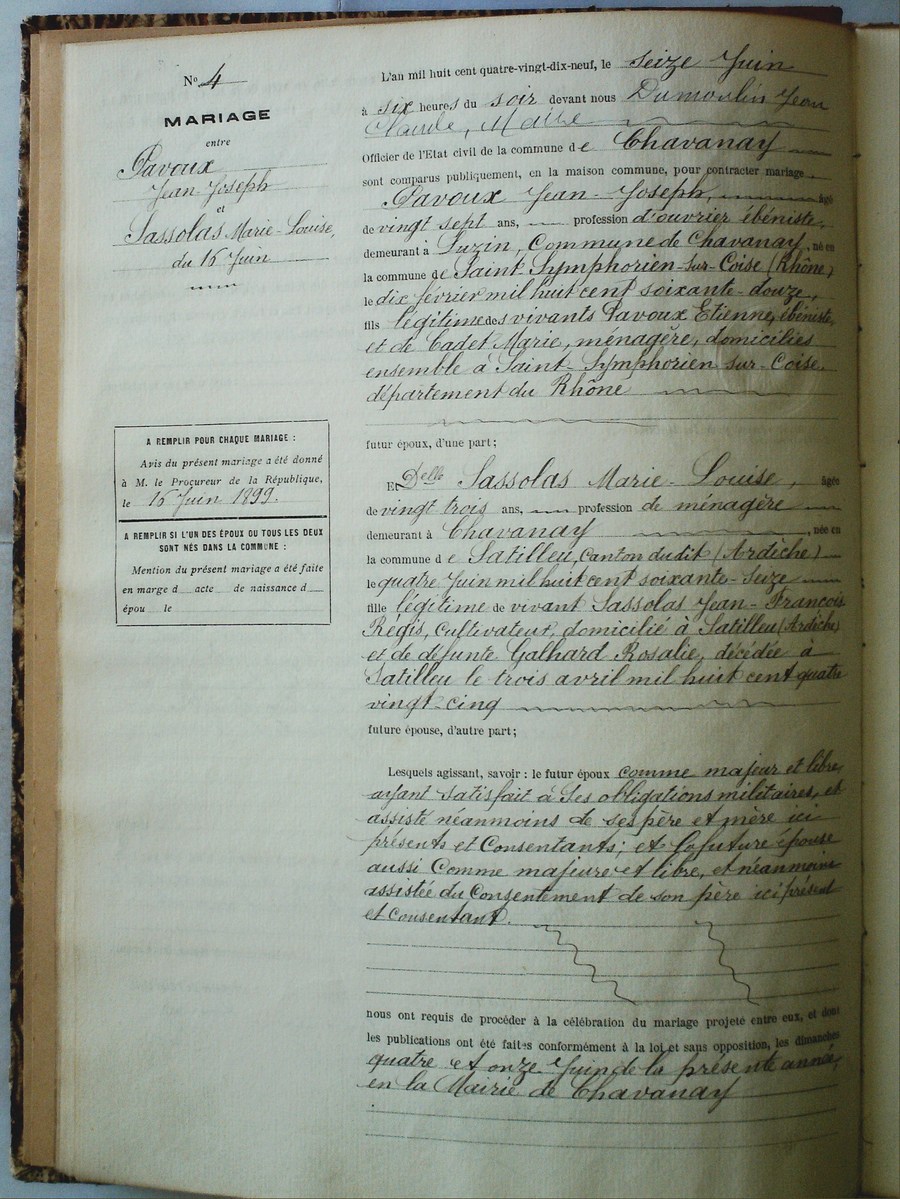 No 4
MARIAGE
entre
Pavoux
Jean Joseph
et
Sassolas Marie-Louise,
du 16 Juin
A REMPLIR POUR CHAQUE MARIAGE :
Avis du présent mariage a été donné
à M. le Procureur de la République,
le 16 Juin 1899.
A REMPLIR SI L'UN DES ÉPOUX OU TOUS LES DEUX
SONT NÉS DANS LA COMMUNE :
Mention du présent mariage a été faite
en marge d acte de naissance d
épou le
L'an mil huit cent quatre-vingt-dix-neuf, le seize Juin
à six heures du soir devant nous Dumoulin Jean
Claude, Maire
Officier de l'Etat civil de la commune de Chavanay
sont comparus publiquement, en la maison commune, pour contracter mariage
Pavoux Jean-Joseph, âgé
de vingt sept ans, profession d'ouvrier ébéniste,
demeurant à Luzin, Commune de Chavanay, né en
la commune de Saint Symphorien-sur-Coise (Rhône)
le dix février mil huit cent soixante-douze,
fils légitime des vivants Pavoux Etienne, ébéniste,
et de Cadet Marie, ménagère, domiciliés
ensemble à Saint-Symphorien-sur-Coise,
département du Rhône
futur époux, d'une part ;
Et Delle Sassolas Marie-Louise, âgée
de vingt trois ans, profession de ménagère
demeurant à Chavanay, née en
la commune de Satilleu, Canton dudit (Ardèche)
le quatre Juin mil huit cent soixante-seize
fille légitime de vivant Sassolas Jean-François
Régis, Cultivateur, domicilié à Satilleu (Ardèche)
et de défunte Galhard Rosalie, décédée à
Satilleu le trois avril mil huit cent quatre
vingt-cinq
future épouse, d'autre part ;
Lesquels agissant, savoir : le futur époux comme majeur et libre
ayant satisfait à ses obligations militaires, et
assisté néanmoins de ses père et mère ici
présents et Consentants ; et la future épouse
aussi Comme majeure et libre, et néanmoins
assistée du Consentement de son père ici présent
et consentant.
nous ont requis de procéder à la célébration du mariage projeté entre eux, et dont
les publications ont été faites conformément à la loi et sans opposition, les dimanches
quatre et onze Juin de la présente année,
en la Mairie de Chavanay